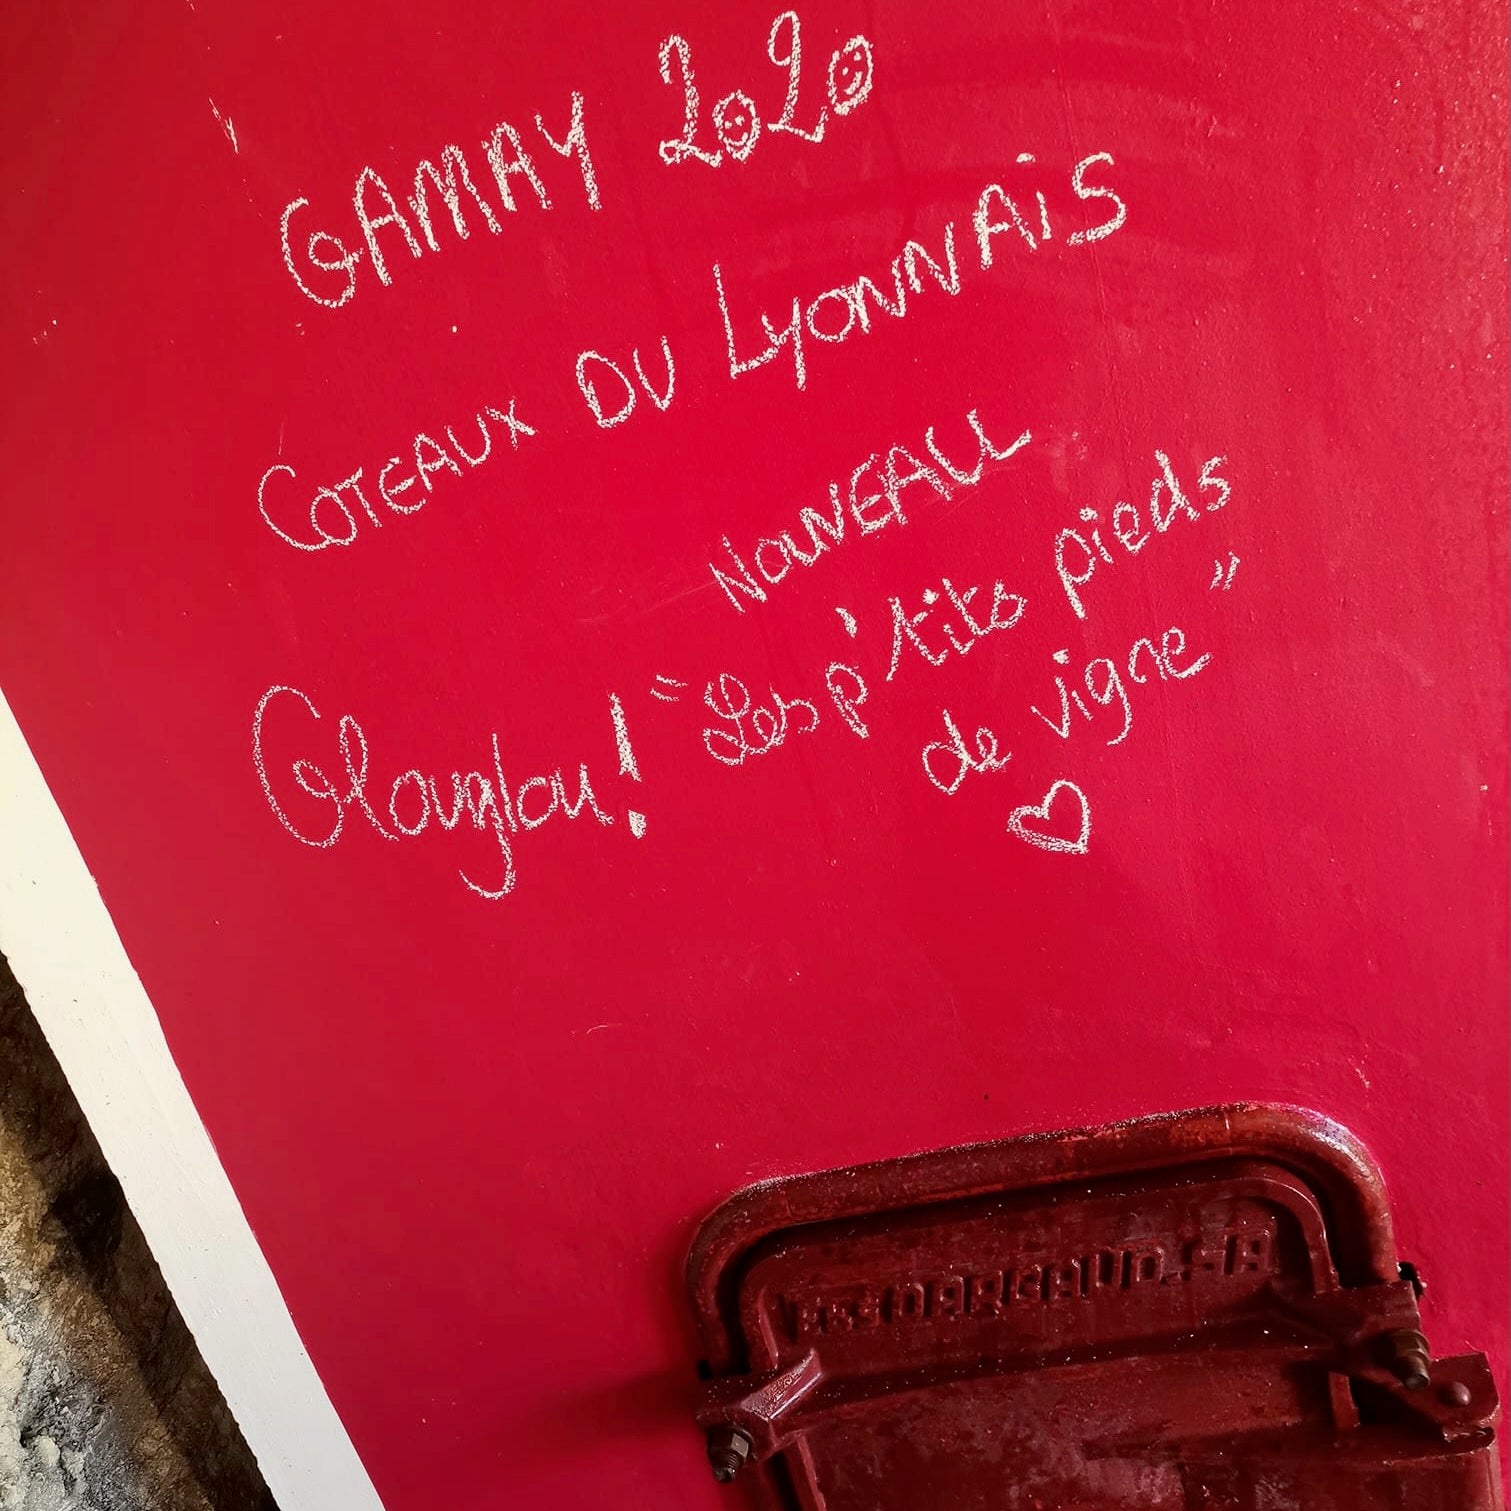 GAMAY 2020
COTEAUX DU LYONNAIS
NOUVEAU
Glouglou! "Les p'tits pieds
de vigne"
DARGAUD.SA